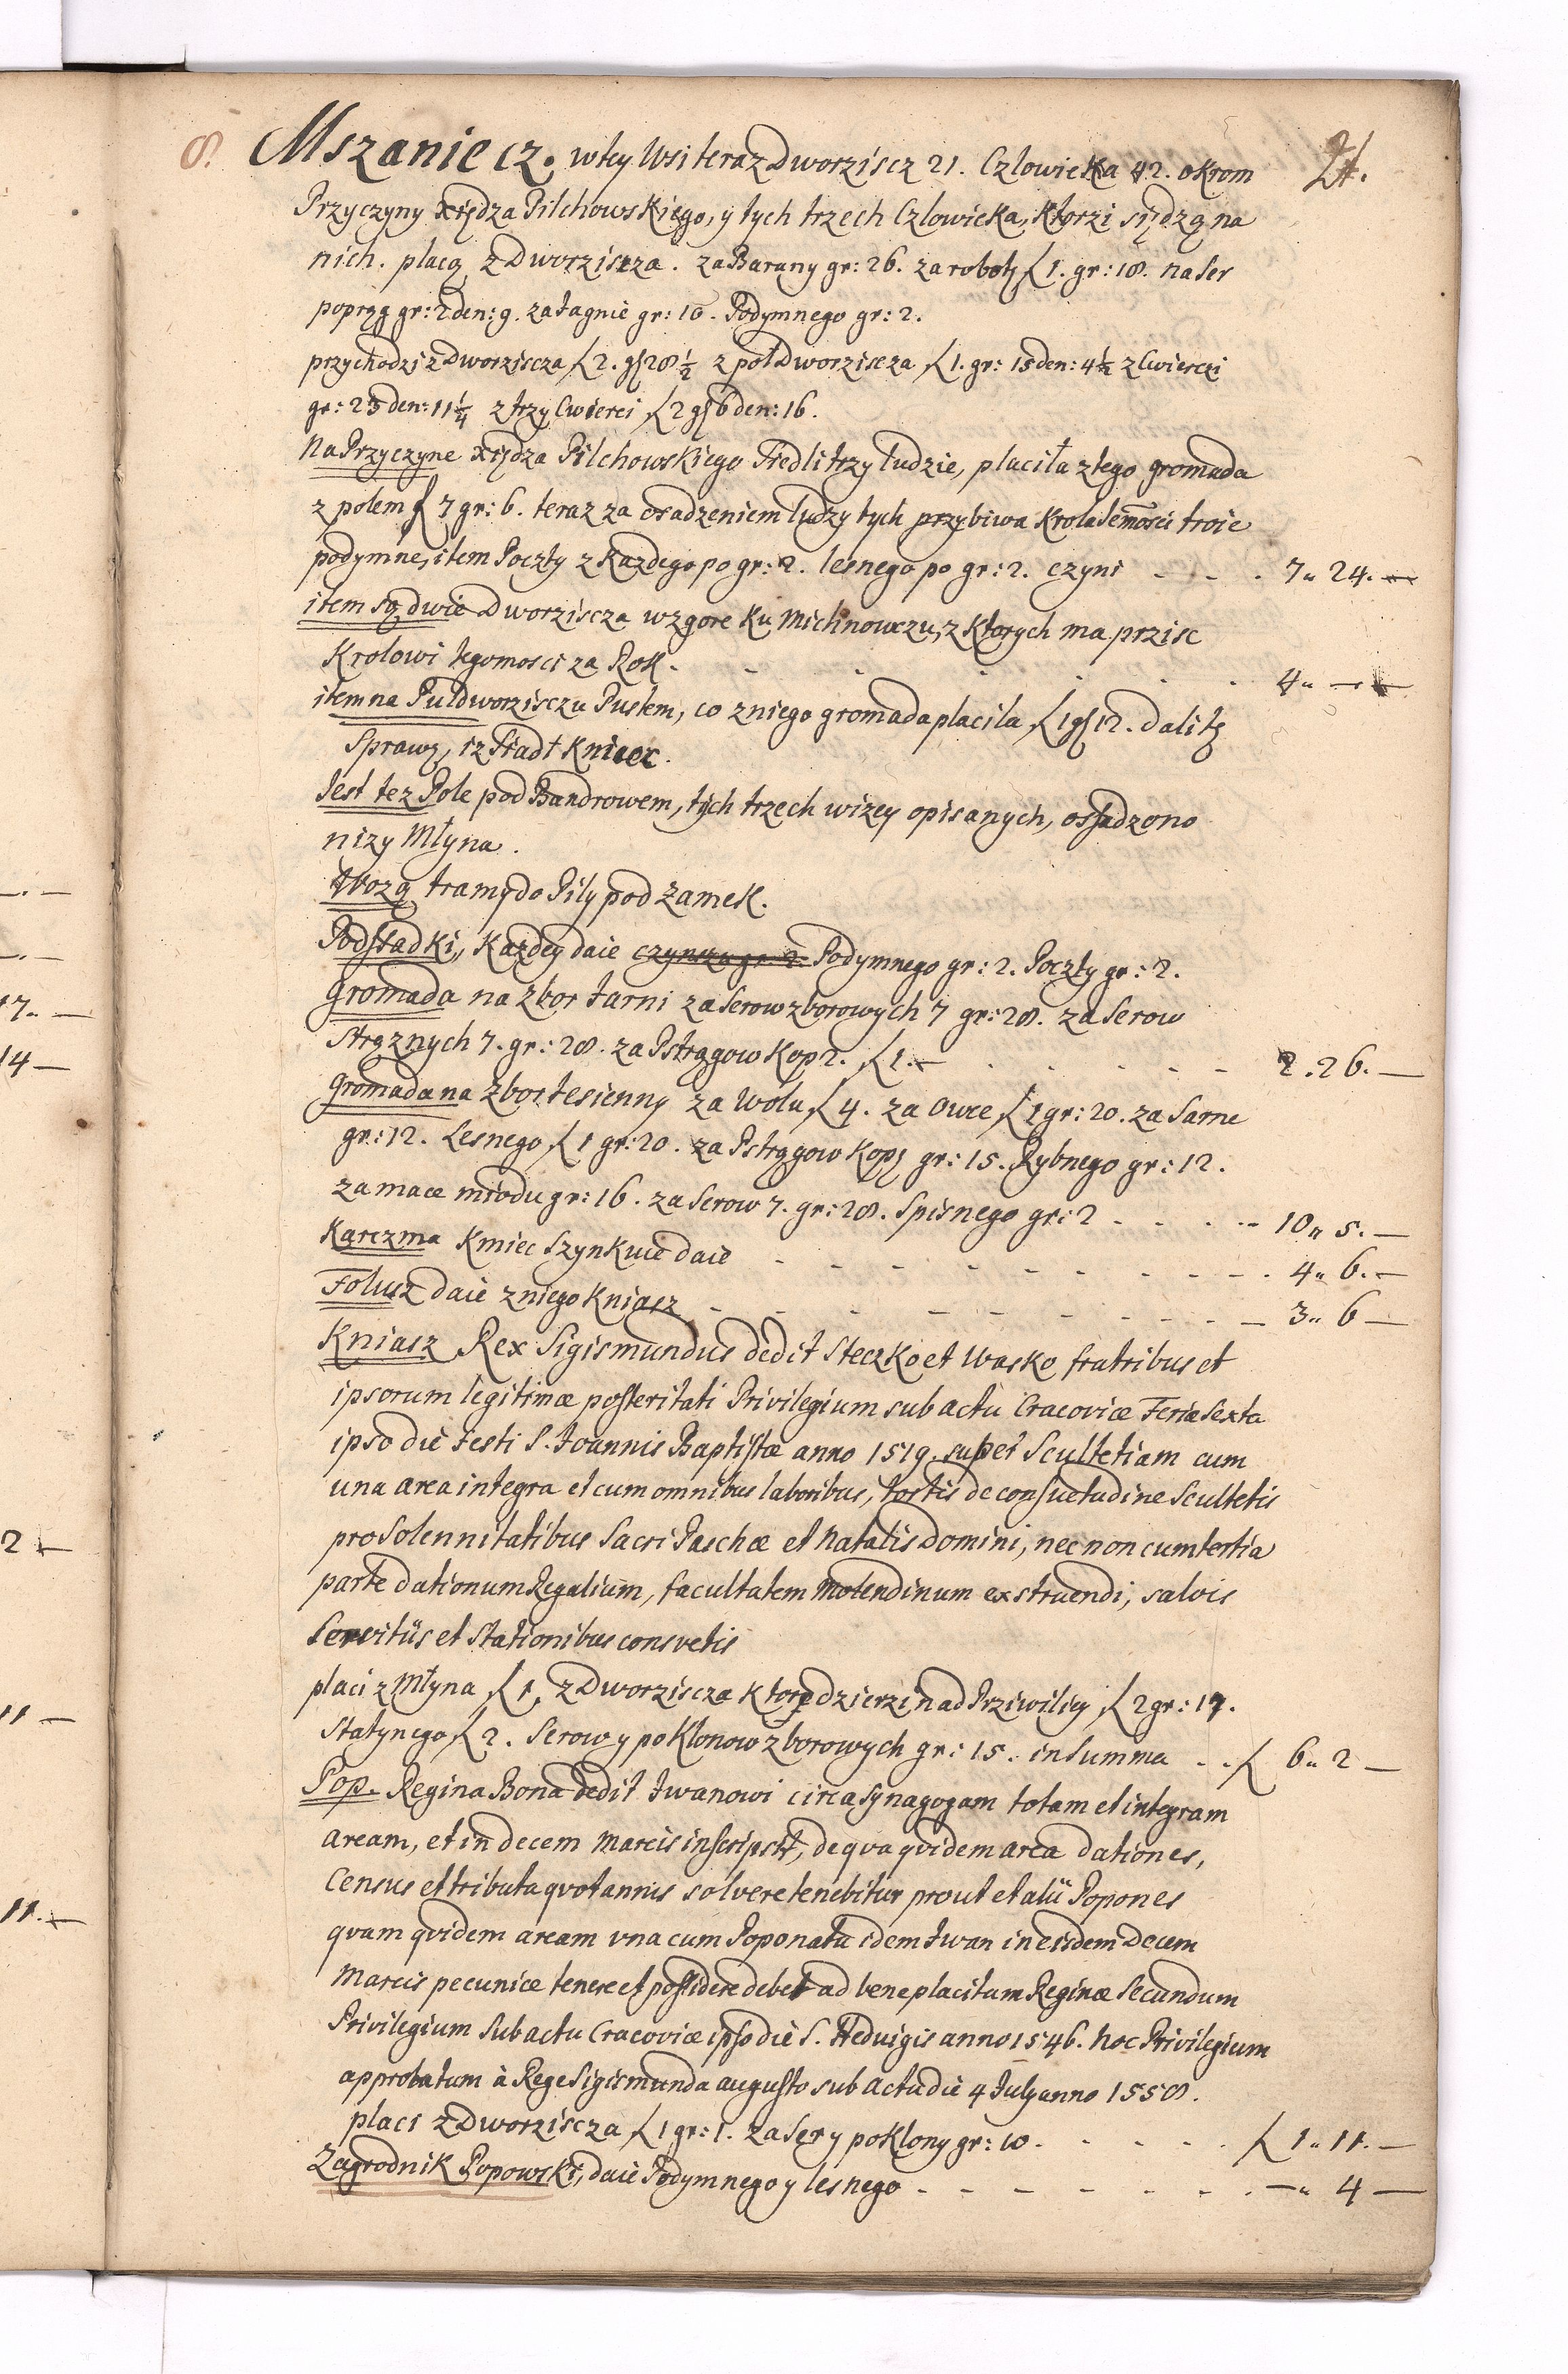 8. Mszaniecz. w tey Wsi teraz Dworziscz 21. Czlowieka 42. okrom 21.
Przyczyny xiędza Pilchowskiego, y tych trzech Czlowieka, ktorzi siędzą na
nich. placą z Dworziscza. za Barany gr: 26. za roboty ƒ 1. gr: 18. na Ser
poprąg gr: 2 den: 9. za Jagnie gr: 10. Podymnego gr: 2.
przychodzi z Dworziscza ƒ 2. gr 28 1/2 z poł Dworziscza ƒ 1. gr: 15 den: 4 1/2 z Cwierczi
gr: 23 den: 11 1/4 z trzy Cwierci ƒ 2 gr 6 den: 16.
Na Przyczyne xiędza Pilchowskiego Siedli trzy ludzie, placiła z tego gromada
z polem ƒ 7 gr: 6. teraz za osadzeniem ludzy tych przybiwa Krola Jemości troie
podymne, item Poczty z Kazdego po gr: 2. lesnego po gr: 2. czyni - - - 7„ 24. —
item są dwie Dworziscza wzgore Ku Michnowczu, z Ktorych ma przisc
Krolowi Jegomosci za Rok - - - - - 4„ — —
item na Puł dworzisczu Pustem, co z niego gromada placila ƒ 1 gr 12. dali tę
Sprawę, iz Siadł Kniecz.
Jest tez Pole pod Bandrowem, tych trzech wizey opisanych, ossadzono
nizy Młyna.
Wozą tramy do Piły pod zamek.
Podsadki, Kazdey daie czynszu gr. 2. Podymnego gr: 2. Poczty gr: 2.
Gromada na zbor Jarni za Serow zborowych 7 gr: 28. za Serow
Strąznych 7. gr: 28. za Pstrągow Kop 2. ƒ 1. — - - - - 2. 26. —
Gromada na zbor Jesienny za Wolu ƒ 4. za Owce ƒ 1 gr: 20. za Sarne
gr: 12. Lesnego ƒ 1 gr: 20. za Pstrągow Kopę gr: 15. Rybnego gr: 12.
za mace miodu gr: 16. za Serow 7. gr: 28. Spisnego gr: 2 - - - - 10„ 5. —
Karczma Kmiec Szynkuie daie - - - - - - - - 4„ 6. —
Folusz daie z niego Kniasz - - - - - - - - 3„ 6 —
Kniasz Rex Sigismundus dedit Steczko et Wasko fratribus et
ipsorum legitimæ posteritati Privilegium sub actu Cracoviæ Feria Sexta
ipso die Festi S. Joannis Baptistæ anno 1519. super Scultetiam cum
una area integra et cum omnibus laboribus, tortis de consuetudine Scultetis
pro Solennitatibus Sacri Paschæ et Natalis Domini, nec non cum tertia
parte dationum Regalium, facultatem Molendinum exstruendi, salvis
Servitiis et Stationibus consvetis
placi z Młyna ƒ 1, z Dworziscza Ktore dzierzi nad Prziwiliey ƒ 2 gr: 17.
Statynego ƒ 2. Serow y poklonow zborowych gr: 15. in Summa - - ƒ 6„ 2 —
Pop. Regina Bona dedit Iwanowi circa synagogam totam et integram
aream, et in decem Marcis inscripsit, de qva qvidem area dationes,
Census et tributa qvotannis solvere tenebitur prout et alii Popones
qvam qvidem aream vna cum Poponatu idem Iwan in eisdem Decem
Marcis pecuniæ tenere et possidere debet ad beneplacitum Reginæ Secundum
Privilegium Sub actu Cracoviæ ipso die S. Hedvigis anno 1546. hoc Privilegium
approbatum à Rege Sigismundo augusto sub actu die 4 July anno 1558.
placi z Dworziscza ƒ 1 gr: 1. za Ser y poklony gr: 10. - - - - - ƒ 1„ 11. —
Zagrodnik Popowski, daie Podymnego y lesnego - - - - - - - —„ 4 —